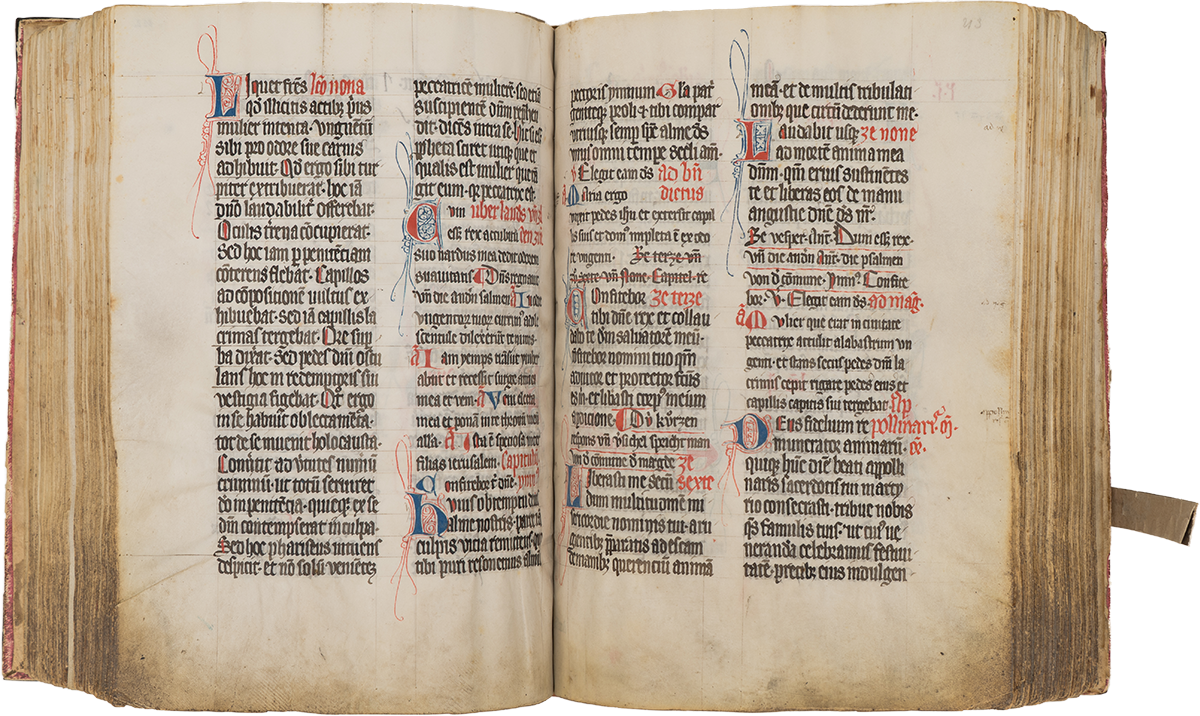 Liquet frēs lcō nona
qd illicitis actibꝫ p̄us
mulier intenta · vngentū
sibi pro odore sue carnis
adhibuit · Qd ergo sibi tur
piter exhibuerat · hoc iā
dn̄o laudabilit̄ offerebat ·
Oculis t̄rena cōcupierat ·
Sed hoc iam p̄ penitenciam
cōterens flebat · Capillos
ad cōpositionem uultus ex
hibuerat · sed iā capillis la
crimas tergebat · Ore sup
ba dix̄at · Sed pedes dn̄i oscu
lans hoc in redemptoris sui
vestigia figebat · Qt̄ ergo
in se habuit oblectamēta ·
tot de se inuenit holocausta ·
Conūtit ad v̄tutes numerū
criminū · ut totū seruiret
deo in penitēcia · quicqꝫ ex se
dm̄ contempserat in culpa ·
Sed hoc phariseus intuens
despicit · et nō solū venientē
peccatricē mulierē · sed etiā
suscipientē dn̄m rep̄hen
dit · dicēs intra se · hic si ess
ppheta sciret utiqꝫ que et
qualis est mulier que tā
git eum · qꝛ peccatrix est ·
Cvm
ess rex accubitu
suo nardus mea dedit odorem
suauitatis · Dn̄s regnauit
vn̄ die andn̄ salmen In odore
vngentorū tuorū currimus adole
scentule dilexerūt te nimis ·
Iam yemps trāsiit ymber
abiit et recessit surge amica
mea et veni · Veni electa
mea et ponā in te thronū meū
alla · Ista ē speciosa inter
filias ierusalem · capitulū
Confitebor t̄ dn̄e · ympn̄
Huius obtentu deus
alme nostris · parce iā
culpis vicia remittens · quo
tibi puri resonemus almū
pectoris ymnum Gl̄a patꝰ
genitēqꝫ proli · et tibi compar
utriusqꝫ semp sp̄c alme ds̄
vnus omni tempe seculi · am̄ ·
℣ Elegit eam ds̄ ad bn̄
Maria ergo dictus
vnxit pedes ihū et extersit capil
lis suis et domꝰ impleta ē ex odo
re vngenti · Ze terze vn̄
vn̄ None · Capitel · re
Confitebor ze terze
tibi dn̄e rex et collau
dabo te dm̄ saluatorē meū ·
cōfitebor nomini tuo qm̄
adiutor et protector fc̄us
es m̄ · et libasti corpꝰ meum
a pdicione · Dy kurzen
respons vn̄ v̄sichel spricht man
in d̄ cōmune d̄ maegde ze
Liberasti me secun Sexte
dum multitudinē mi
sericordie nominis tui · a ru
gientibꝫ p̄paratis ad escam
de manibꝫ querentiū animā
meā · et de multis tribulati
onibꝫ que circūdederunt me ·
Laudabit usqꝫ ze none
ad mortē anima mea
dn̄m · qm̄ eruis sustinētes
te et liberas eos de manu
angustie dn̄e ds̄ nr̄ ·
Ze vesper · Ant̄ · Dum ess rex ·
vn̄ die andn̄ Ant̄ · die psalmen
von d̄ cōmune · ymnꝰ Confite
bor · ℣ · Elegit eam ds̄ ad maḡ ·
Mulier que erat in ciuitate
peccatrix attulit alabastrum vn
genti · et stans secus pedes dn̄i la
crimis cepit rigare pedes eius et
capillis capitis sui tergebat ·
Deus fidelium re pollinaris m̄ ·
munerator animarū ·
qui hūc diē beati appolli
naris sacerdotis tui marty
rio consecrasti · tribue nobis
qs̄ famulis tuis · ut cuiꝰ ue
neranda celebramus festiui
tatē · precibꝫ eius indulgen